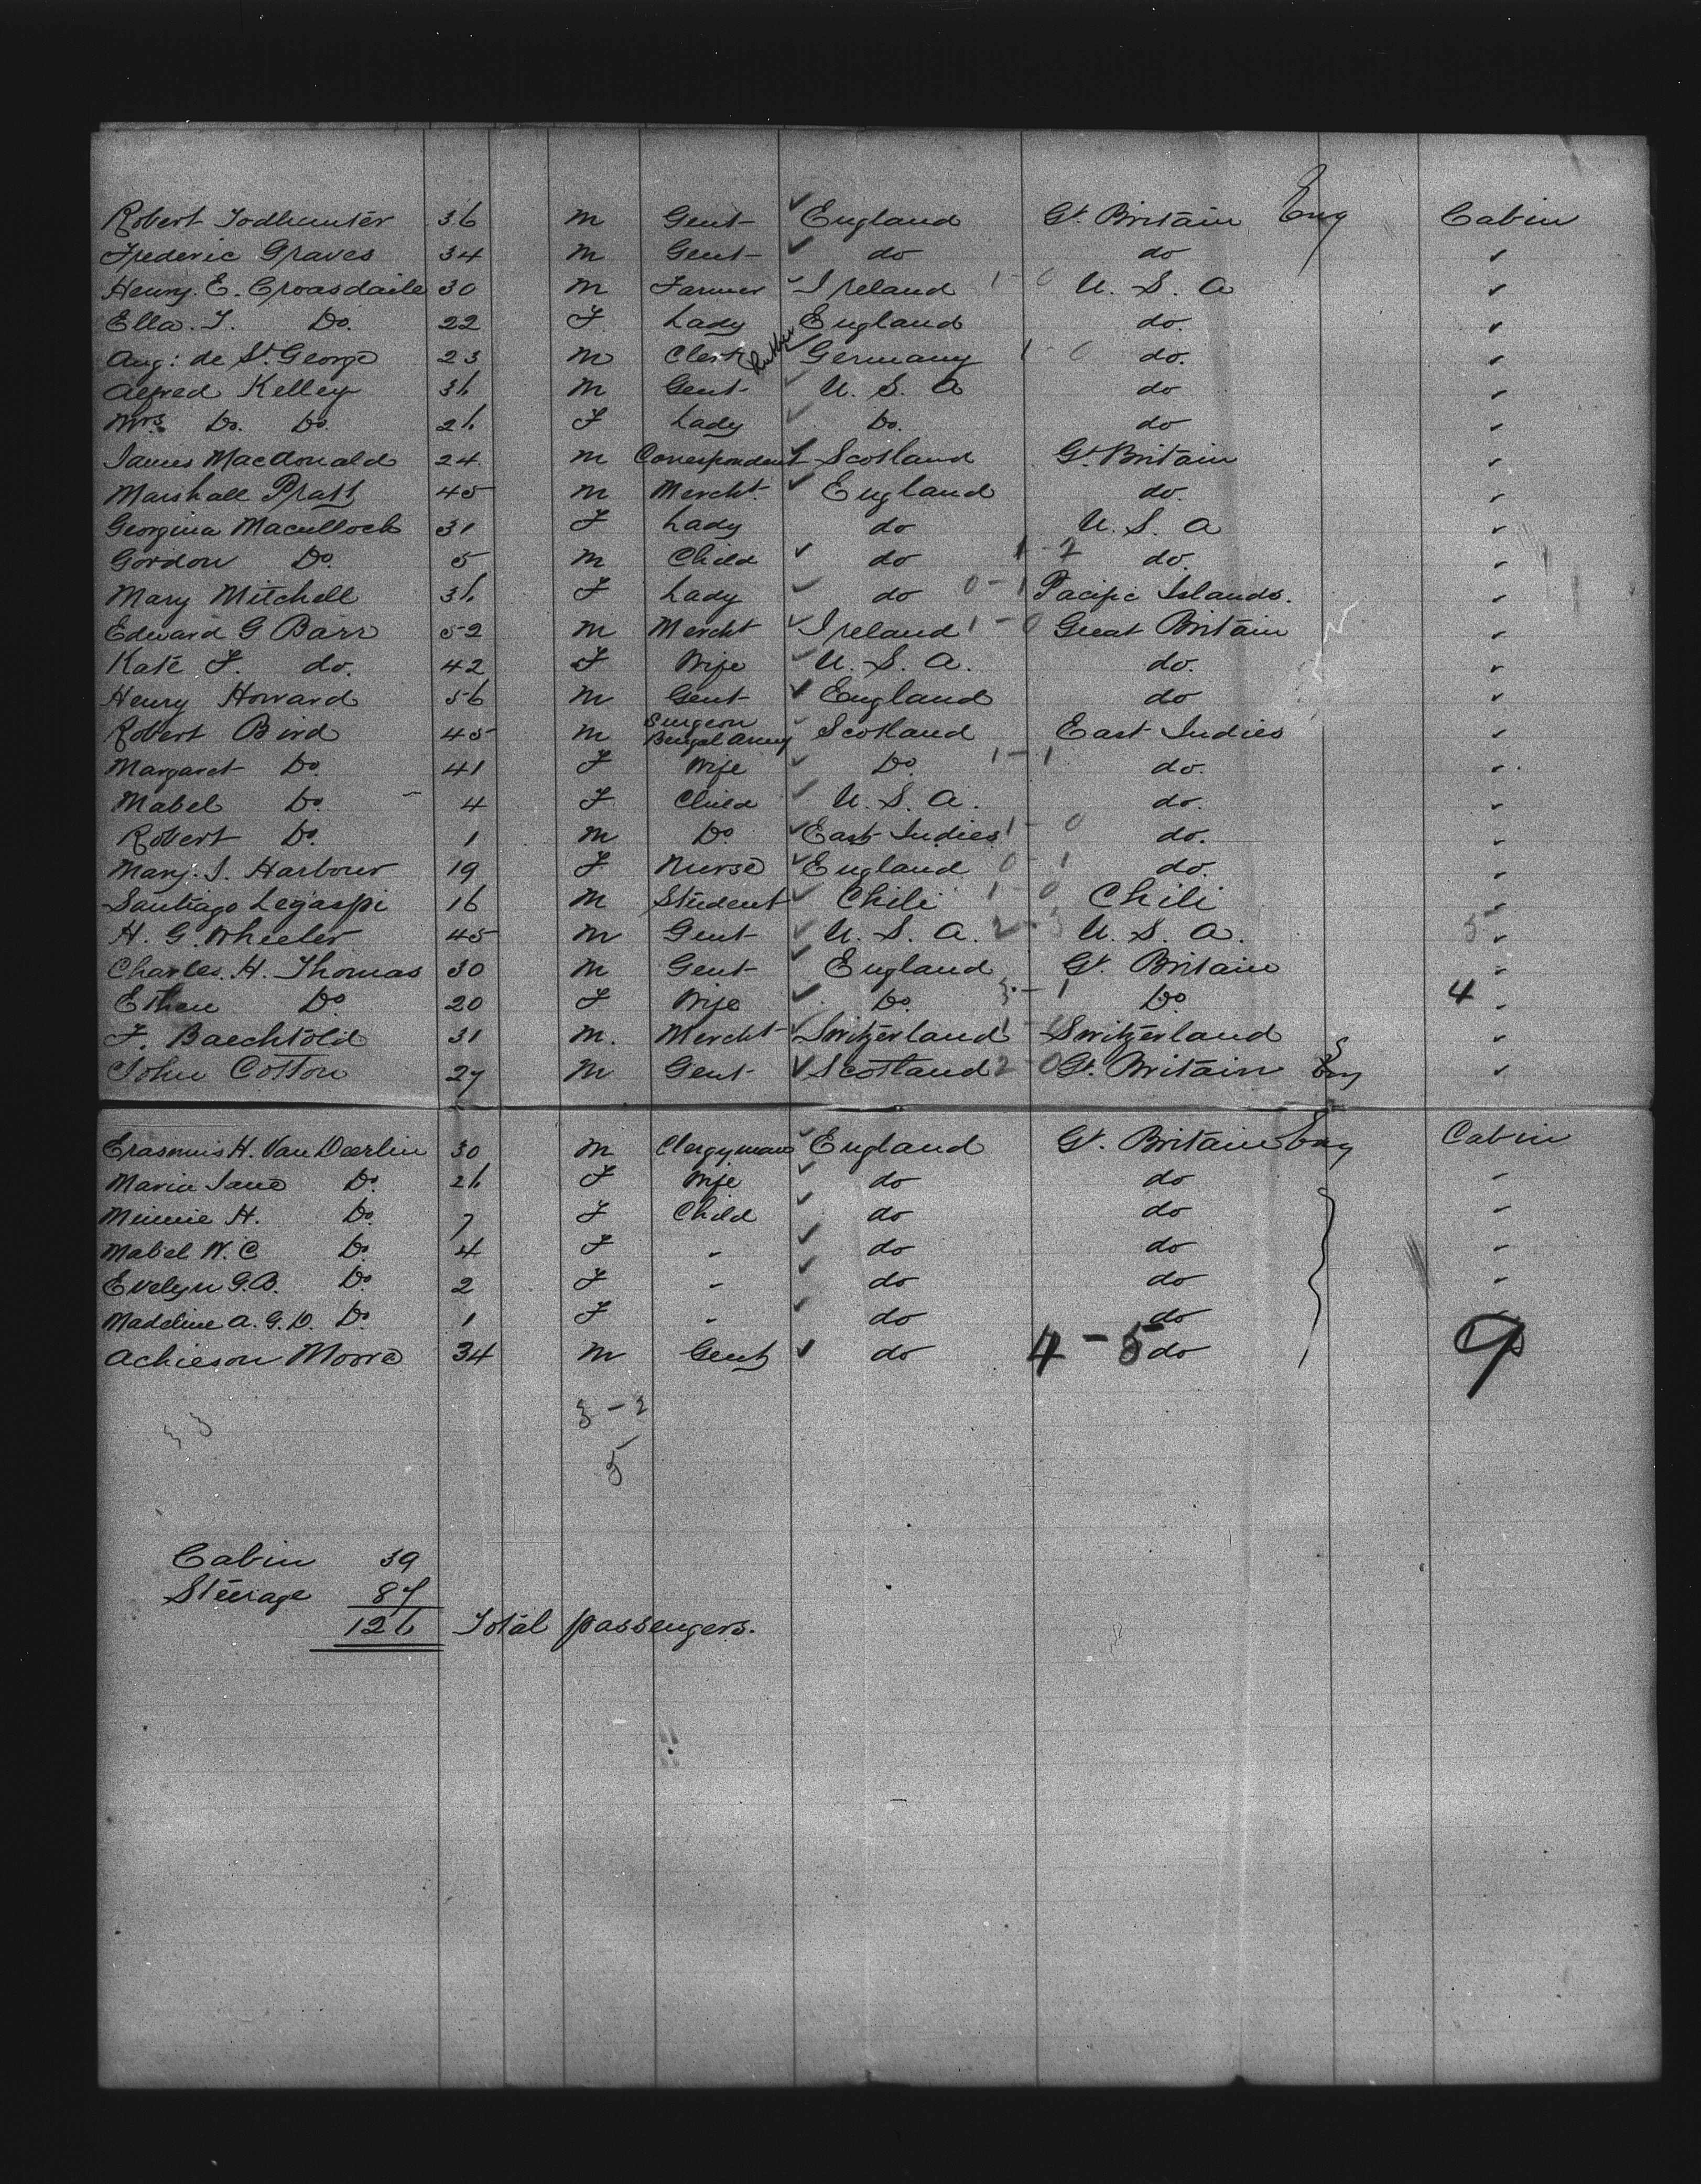 Robert Todhunter 36 M Gent England Gt. Britain Eng Cabin
Frederic Graves 34 M Gent do do "
Henry. E. Croasdaile 30 M Farmer Ireland 1 - 0 U. S. A "
Ella. T. Do. 22 F Lady England do. "
Aug: de St. George 23 M Clerk Germany 1 - 0 do. "
Alfred Kelley 36 M Gent U. S. A do "
Mrs. Do. Do. 26 F Lady Do. do "
James MacDonald 24 M Correspondent Scotland Gt. Britain "
Marshall Pratt 45 M Mercht. England do. "
Georgina Maculloch 31 F Lady do U. S. A "
Gordon Do. 5 M Child do 1 - 2 do. "
Mary Mitchell 36 F Lady do 0 - 1 Pacific Islands. "
Edward G Barr 52 M Mercht Ireland 1 - 0 Great Britain "
Kate F. do. 42 F Wife U. S. A. do. "
Henry Howard 56 M Gent England do "
Robert Bird 45 M Surgeon Bengal Army Scotland East Indies "
Margaret Do. 41 F Wife Do. 1 - 1 do. "
Mabel Do. 4 F Child U. S. A. do. "
Robert Do. 1 M Do. East Indies 1 - 0 do. "
Mary. S. Harbour 19 F Nurse England 0 - 1 do. "
Santiago Legaspi 16 M Student Chili 1 - 0 Chili "
H. G. Wheeler 45 M Gent U. S. A. 2 - 3 U. S. A. 5 "
Charles. H. Thomas 30 M Gent England Gt. Britain "
Do. 20 F Wife Do. 3 - 1 Do. 4 "
F. Baechtold 31 M. Mercht Switzerland 1 - Switzerland "
John Cotton 27 M Gent Scotland 2 - 0 Gt. Britain Eng "
Erasmus H. Van Deerlin 30 M Clergyman England Gt. Britain Eng Cabin
Maria Jane Do. 26 F Wife do do "
Minnie H. Do. 7 F Child do do "
Mabel W. C Do. 4 F " do do "
Evelyn G. B. Do. 2 F " do do "
Madeline A. G. D. Do. 1 F " do do "
Achieson Moore 34 M Gent do 4 - 5 do 9
3 - 2
5
Cabin 39
Steerage 87
126 Total passengers.